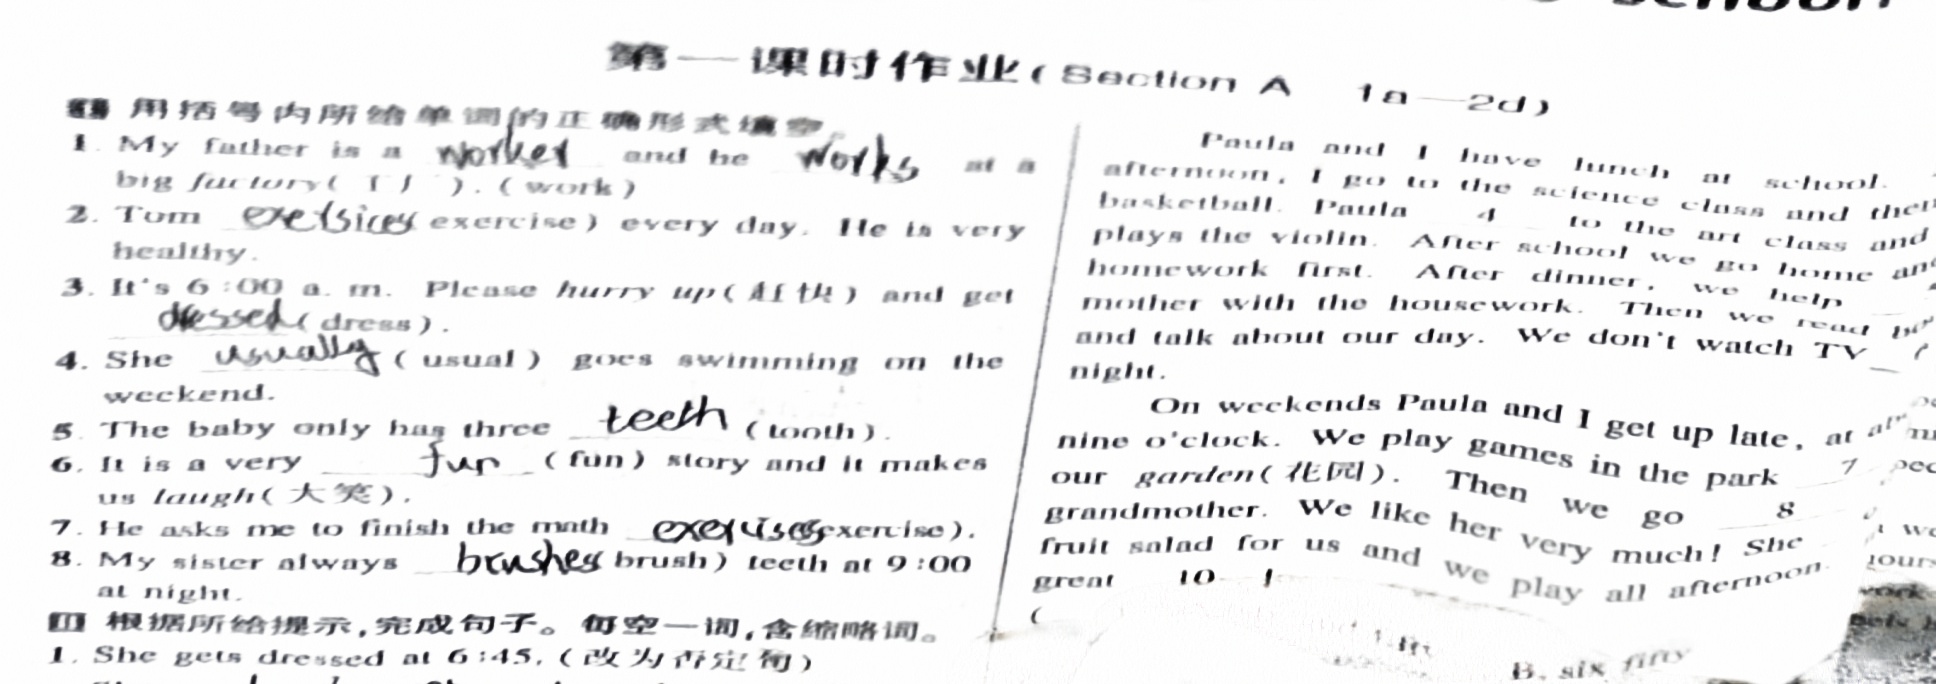 school
第一课时作业(Section A 1a—2d)
Ⅰ 用括号内所给单词的正确形式填空。
1. My father is a worker and he works at a
big factory(工厂). (work)
2. Tom exercises exercise) every day. He is very
healthy.
3. It's 6:00 a. m. Please hurry up(赶快) and get
dressed (dress).
4. She usually (usual) goes swimming on the
weekend.
5. The baby only has three teeth (tooth).
6. It is a very fun (fun) story and it makes
us laugh(大笑).
7. He asks me to finish the math exercises exercise).
8. My sister always brushes brush) teeth at 9:00
at night.
Ⅱ 根据所给提示,完成句子。每空一词,含缩略词。
1. She gets dressed at 6:45. (改为否定句)
Paula and I have lunch at school.
afternoon, I go to the science class and then
basketball. Paula 4 to the art class and
plays the violin. After school we go home and
homework first. After dinner, we help
mother with the housework. Then we read
and talk about our day. We don't watch TV
night.
On weekends Paula and I get up late, at
nine o'clock. We play games in the park 7
our garden(花园). Then we go 8
grandmother. We like her very much! She
fruit salad for us and we play all afternoon.
great 10 !
(
B. six fifty